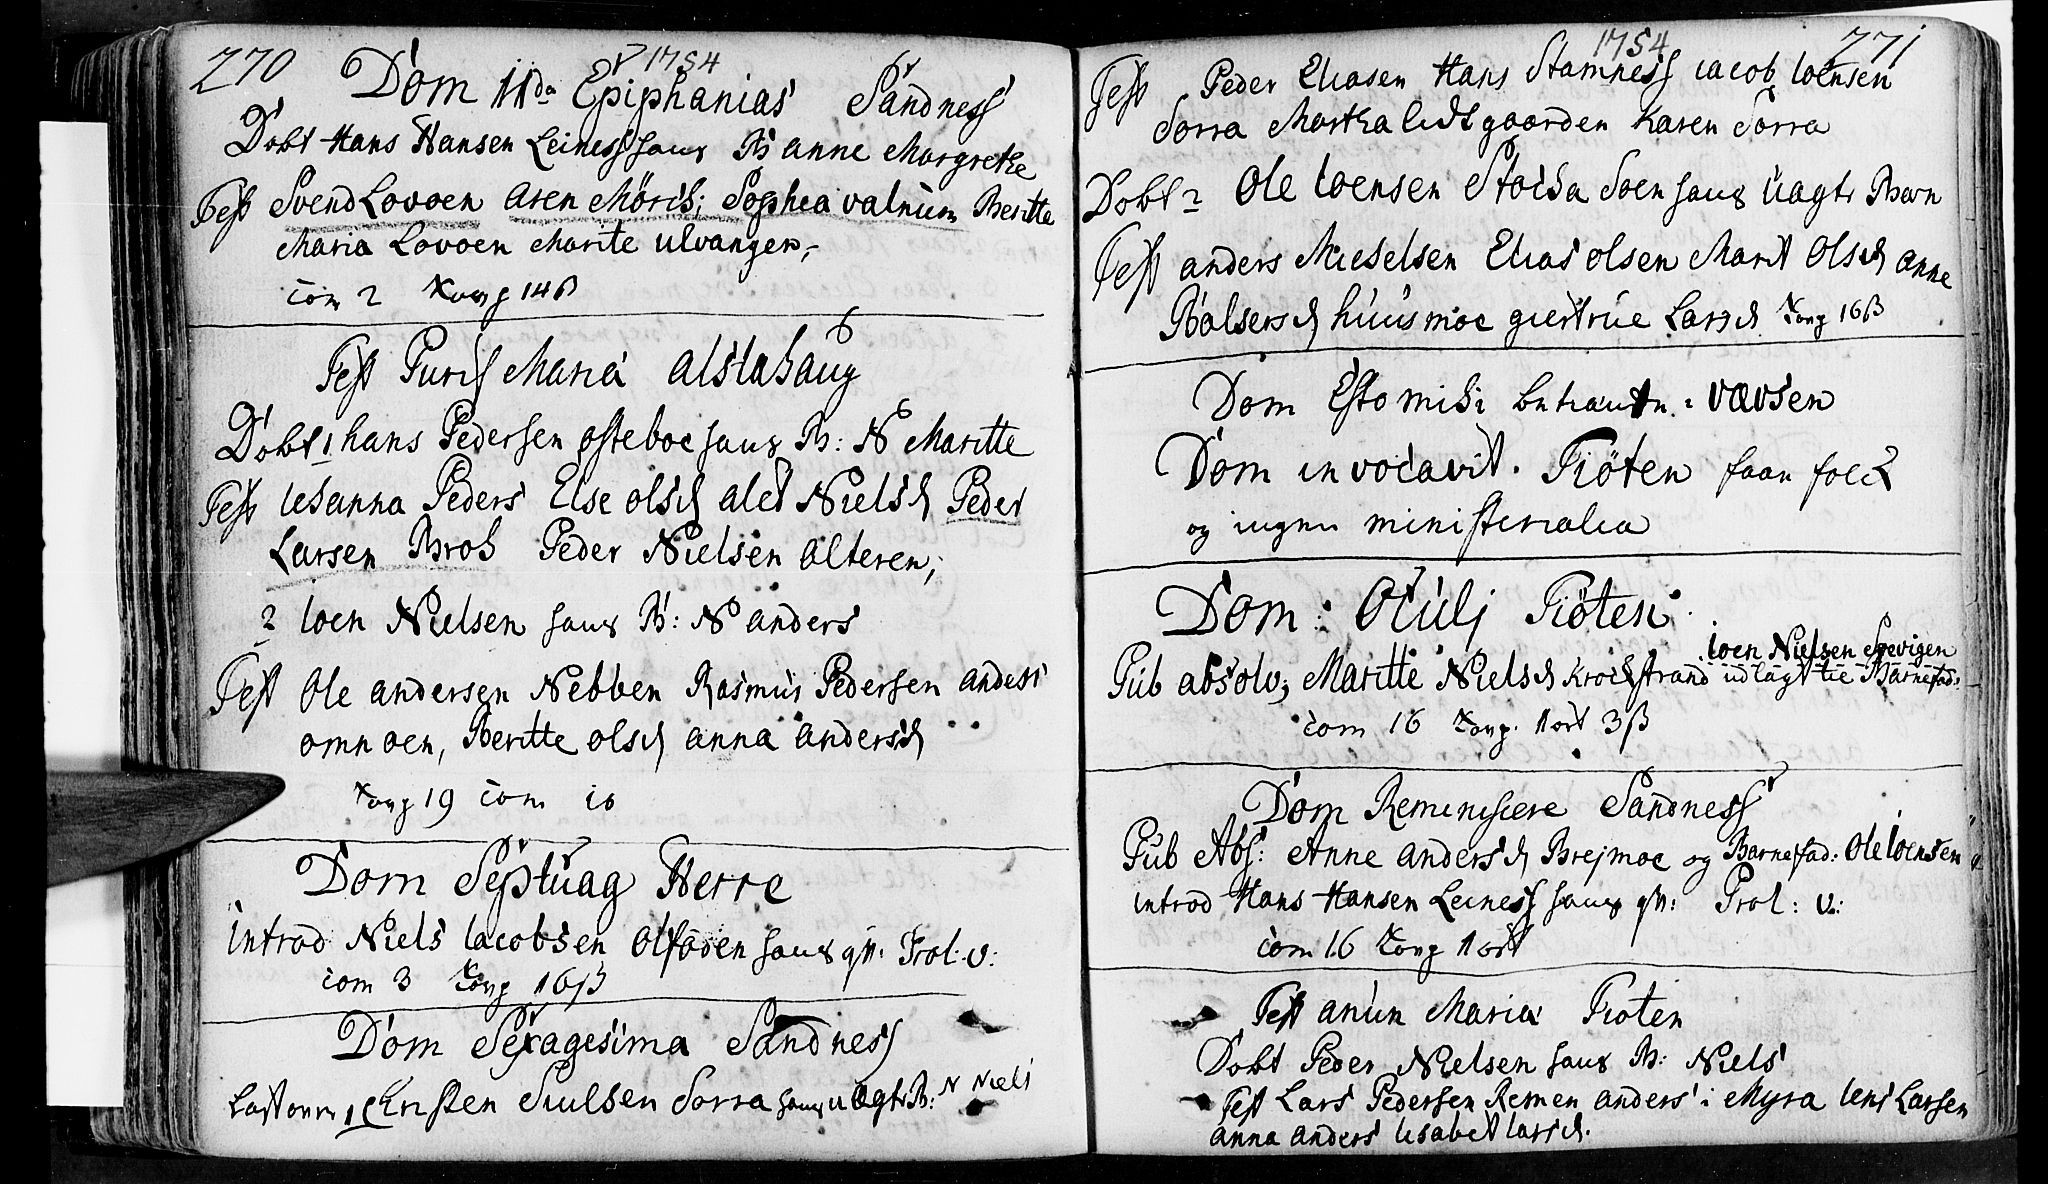 270
1754
Dom IIda Epiphanias Sandness
Dobt Hans Hansen Leiness hans B anne Margrethe
Test Svend Lovoen aren Mörch; Sophea valnum Beritte
Maria Lovoen Marite ulvangen,
com 2 Tavg 14β
Fest Purif Maria alstahaug
Dobt 1 hans Pedersen østeboe hans B: N Maritte
Test Usanna Peders Else olsd alet Nielsd Peder
Larsen Broch Peder Nielsen alteren,
2 Joen Nielsen hans B: N anders
Test Ole andersen Nebben Rasmus Pedersen anders
omnoen, Beritte olsd anna andersd
Tavg 19 com 10
Dom Septuag Herre
introd Niels Jacobsen hans qv. Trol: v:
com 3 Tavg 16β
Dom Sexagesima Sandness
1 Christen Sorra hans uægt B: N Niels
1754
271
Test Peder Eliasen Hans Stamness Jacob Joensen
Sorra Martha Karen Sorra
Dobt 2 Ole Joensen hans uægt Barn
Test anders Michelsen Elias olsen Marit Olsd anne
Balsersd huusmoe giertrue Larsd Tavg 16β
Dom Estomihi vævsen
Dom invocavit. Tiöten faae folck
og ingen ministerialia
Dom: Oculj Tiöten
Joen Nielsen Sævigen
Pub absolv; Maritte Nielsd Krockstrand udlagt til Barnefad:
com 16 Tavg. 1 ort 3β
Dom Reminiscere Sandness
Pub Abs: Anne andersd Brejmoe og Barnefad: Ole Joensen
introd Hans Hansen Leiness hans qv: Prol: v:
com 16 Tavg 1 ort
Fest anun Maria Tioten
Dobt Peder Nielsen hans B: Niels
Test Lars Pedersen Remen anders i Myra Jens Larsen
anna anders Lisabet larsd.